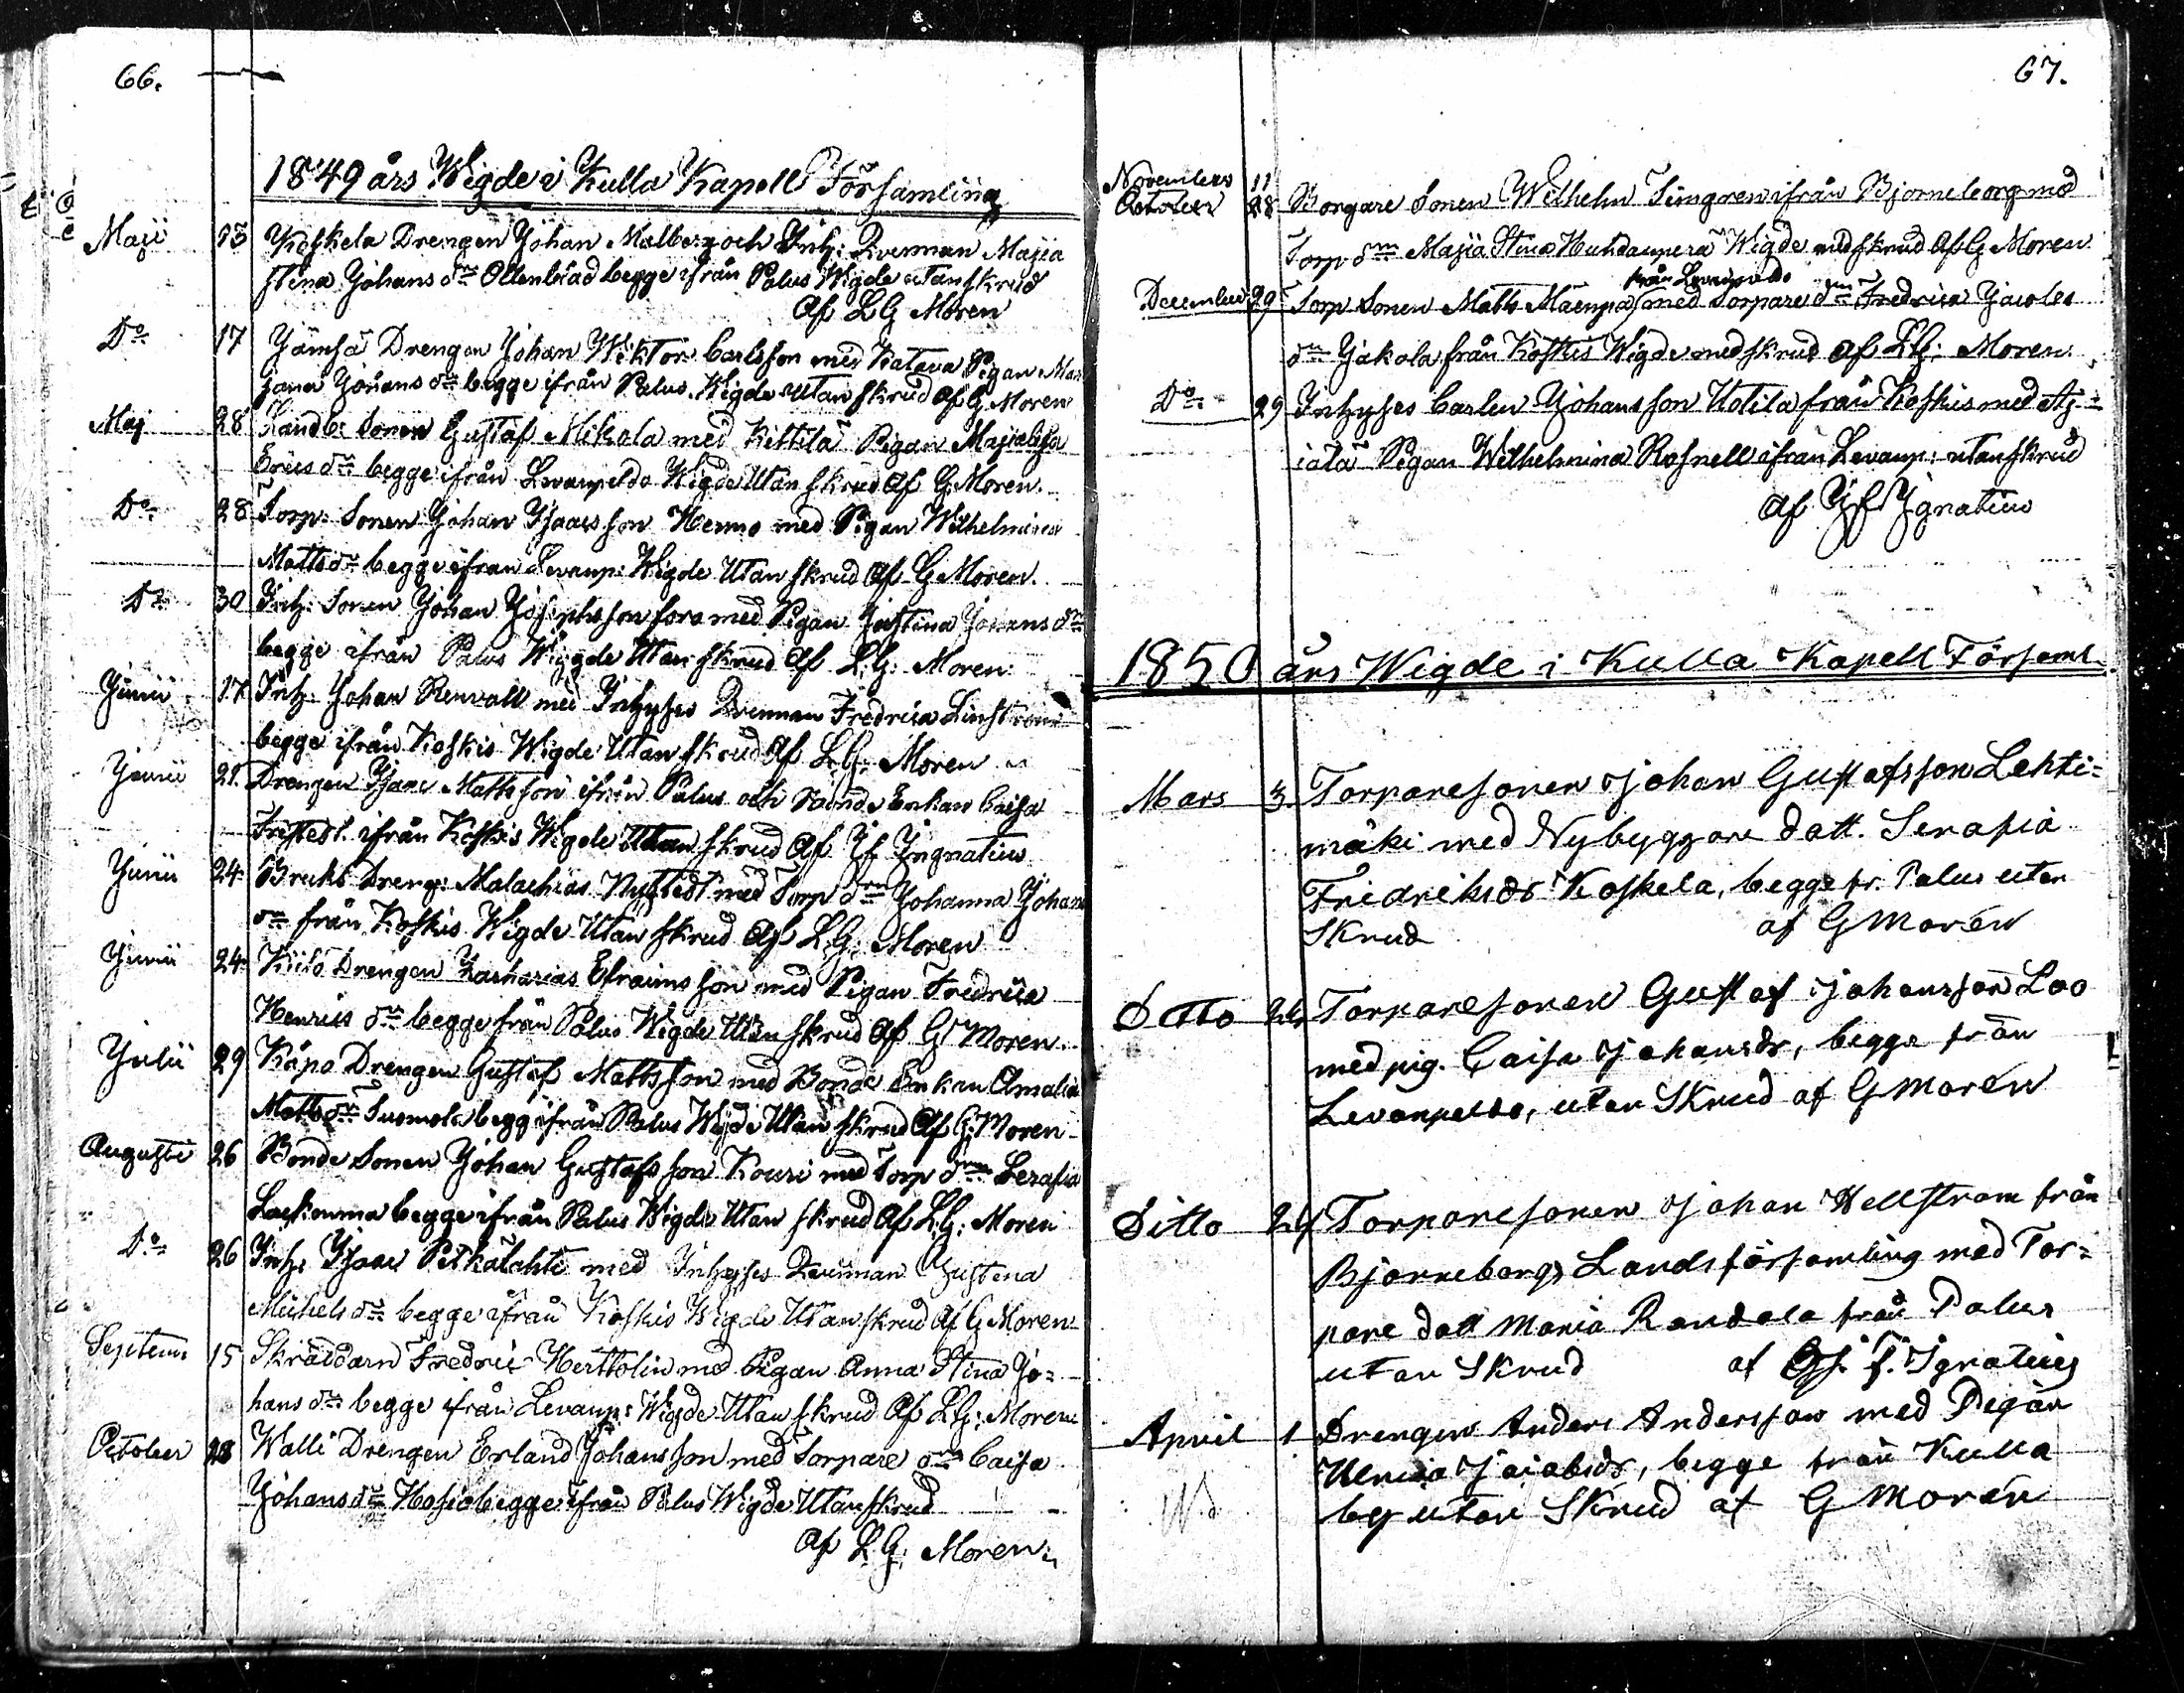 66.
1849 års Wigde i Kulla Kapell Församling
Maji 13 Koskela Drengen Johan Malberg och Inh: Qvennan Majia
Stina Johans dr Ollenblad begge ifrån Palus Wigde utan skrud
af L G Moren
Do 17 Jämsä Drengen Johan Wiktor Carlsson med Katava Pigan Mar
jana Johans dr begge ifrån Palus Wigde Utan skrud Af G Moren
Maj 28 Landb: Sonen Gustaf Mikola med Kittilä Pigan Majialisa
Erics dr begge ifrån Levanpeldo Wigde Utan skrud Af G. Moren.
Do 28 Torp: Sonen Johan Isaacsson Hermo med Pigan Wilhelmina
Matts dr begge ifrån Levanp: Wigde Utan skrud Af G Moren.
Do 30 Inh: Sonen Johan Josephsson Sora med Pigan Justina Johans dr
begge ifrån Palus Wigde Utan skrud Af L.G: Moren.
Junii 17 Inh: Johan Renvall med Inhyses Qvennan Fredrica Linström
begge ifrån Koskis Wigde Utan skrud Af L.G. Moren
Junii 21. Drengen Isaac Mattsson ifrån Palus och Bonde Enkan Caisa
ifrån Koskis Wigde Utan skrud Af If Ingnatius
Junii 24. Bruks Dreng: Malachias Nystedt med Torp dr Johanna Johans
dr från Koskis Wigde Utan skrud Af L.G: Moren
Junii 24. Drengen Zacharias Efraimsson med Pigan Fredrica
Henrics dr begge från Palus Wigde Utan skrud Af G Moren.
Julii 29 Käpo Drengen Gustaf Mattsson med Bonde Enkan Amalia
Matts dr Suomela begge ifrån Palus Wigde Utan skrud Af G: Moren
Augusti 26 Bonde Sonen Johan Gustafsson Kouri med Torp dr Serafia
begge ifrån Palus Wigde Utan skrud Af L.G: Moren
Do 26 Inh: Isaac Pitkälahti med Inhyses Qvennan Justina
Michels dr begge ifrån Koskis Wigde Utan skrud Af G Moren
Septem: 15 Skräddarn Fredric Herttolin med Pigan Anna Stina Jo=
hans dr begge ifrån Levanp: Wigde Utan skrud Af L.G: Moren
October 28 Walli Drengen Erland Johansson med Torpare dr Caisa
Johans dr Hosio begge ifrån Palus Wigde Utan skrud
Af L.G. Moren
67.
November 11
October 28 Borgare Sonen Wilhelm Timgren ifrån Bjorneborg med
Torp dr Majia Stina Huhdanperä Wigde med skrud Af G Moren
från Levanpeldo
December 29 Torp Sonen Matts Mäenpä med Torpare dr Fredrica Jacobs
dr Jakola från Koskis Wigde med skrud Af L.G: Moren.
Do 29 Inhyses Carlen Johansson Uotila från Koskis med
Pigan Wilhelmina Rosnell ifrån Levanp: utan skrud
Af If Ignatius
1850 års Wigde i Kulla Kapell Församl.
Mars 3 Torparesonen Johan Gustafsson Lehti=
mäki med Nybyggare dott. Serafia
Fridriksdr Koskela, begge fr. Palus utan
Skrud af G Moren
Ditto 24 Torparesonen Gustaf Johansson Loo
med pig. Caisa Johansdr, begge från
Levanpeldo, utan Skrud af G Moren
Ditto 24 Torparesonen Johan Hellstrom från
Bjorneborgs Landsförsamling med Tor=
pare dott Maria Randala från Palus
utan Skrud af J. Ignatius
April 1 Drengen Anders Andersson med Pigan
Ulrica Jacobsdr, begge från Kulla
by utan Skrud af G Moren